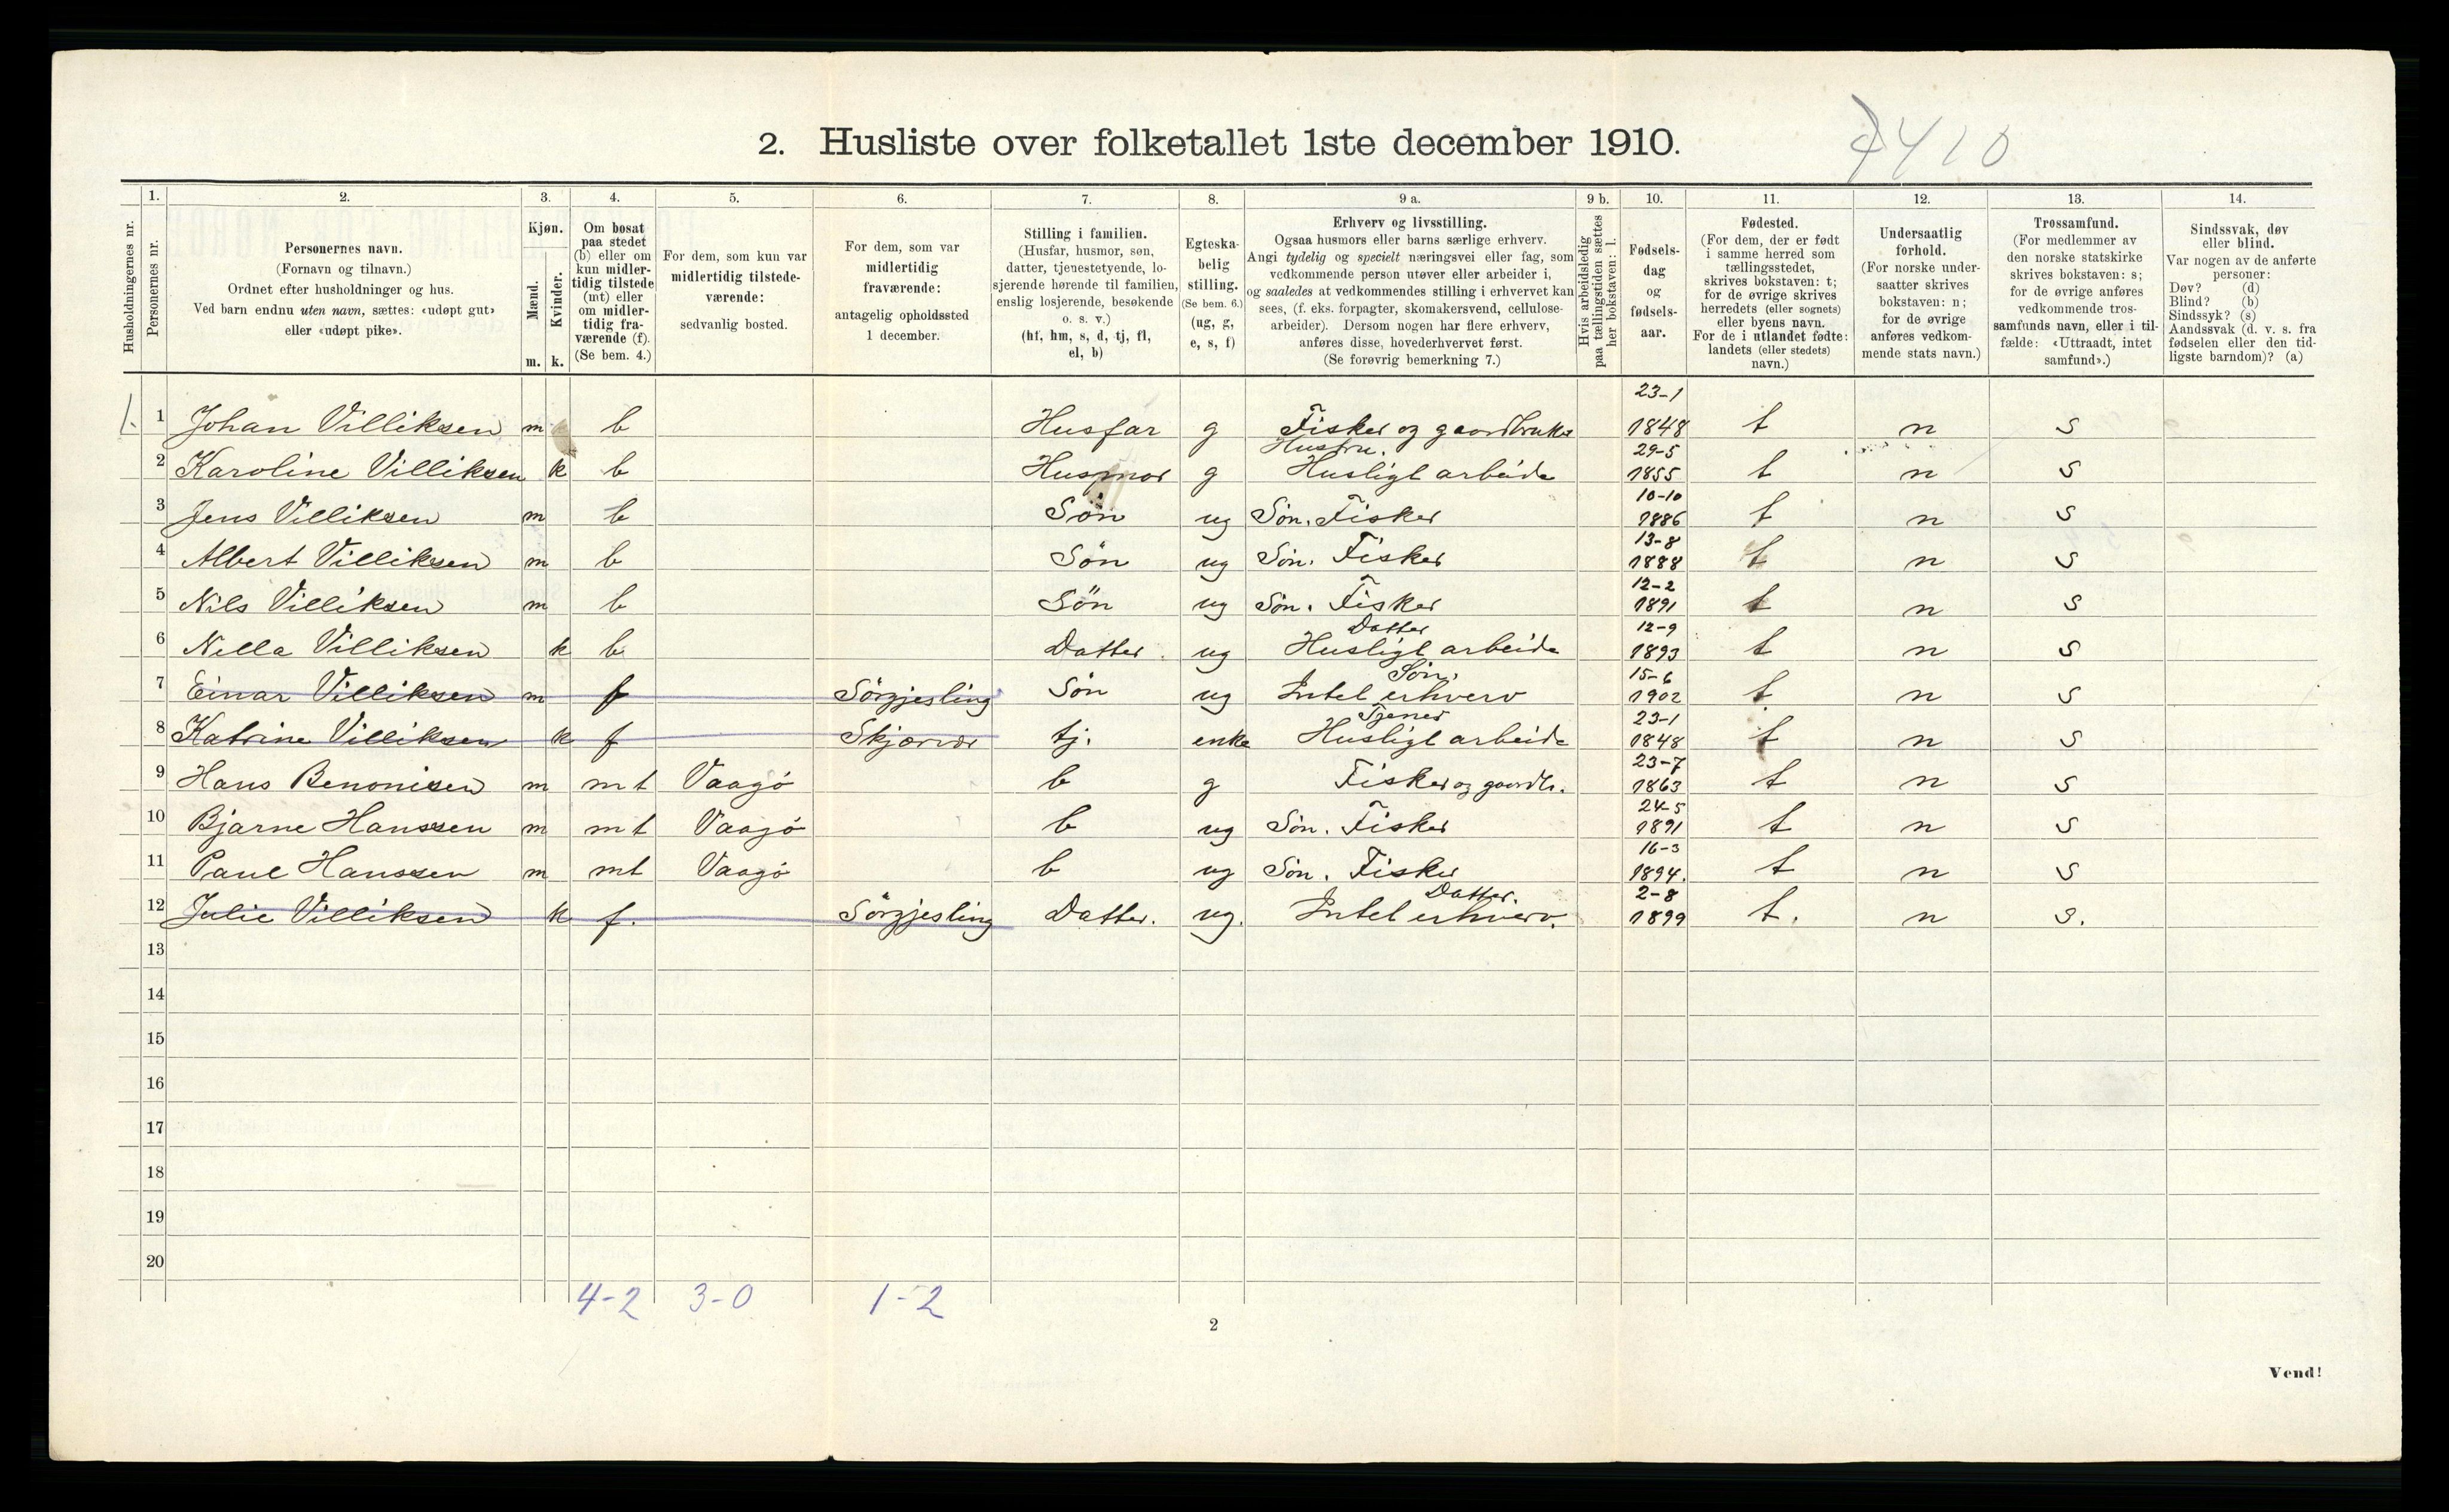 2. Husliste over folketallet 1ste december 1910.
7410
Husholdningernes nr.
1. Personernes nr.
2. Personernes navn.
(Fornavn og tilnavn.)
Ordnet efter husholdninger og hus.
Ved barn endnu uten navn, sættes: «udøpt gut»
eller «udøpt pike».
3. Kjøn.
Mænd. m.
Kvinder. k.
4. Om bosat
paa stedet
(b) eller om
kun midler-
tidig tilstede
(mt) eller
om midler-
tidig fra-
værende (f).
(Se bem. 4.)
5. For dem, som kun var
midlertidig tilstede-
værende:
sedvanlig bosted.
6. For dem, som var
midlertidig
fraværende:
antagelig opholdssted
1 december.
7. Stilling i familien.
(Husfar, husmor, søn,
datter, tjenestetyende, lo-
sjerende hørende til familien,
enslig losjerende, besøkende
o. s. v.)
(hf, hm, s, d, tj, fl,
el, b)
8. Egteska-
belig
stilling.
(Se bem. 6.)
(ug, g,
e, s, f)
9 a. Erhverv og livsstilling.
Ogsaa husmors eller barns særlige erhverv.
Angi tydelig og specielt næringsvei eller fag, som
vedkommende person utøver eller arbeider i,
og saaledes at vedkommendes stilling i erhvervet kan
sees, (f. eks. forpagter, skomakersvend, cellulose-
arbeider). Dersom nogen har flere erhverv,
anføres disse, hovederhvervet først.
(Se forøvrig bemerkning 7.)
9 b. Hvis arbeidsledig
paa tællingstiden sættes
her bokstaven: l.
10. Fødsels-
dag
og
fødsels-
aar.
11. Fødested.
(For dem, der er født
i samme herred som
tællingsstedet,
skrives bokstaven: t;
for de øvrige skrives
herredets (eller sognets)
eller byens navn.
For de i utlandet fødte:
landets (eller stedets)
navn.)
12. Undersaatlig
forhold.
(For norske under-
saatter skrives
bokstaven: n;
for de øvrige
anføres vedkom-
mende stats navn.)
13. Trossamfund.
(For medlemmer av
den norske statskirke
skrives bokstaven: s;
for de øvrige anføres
vedkommende tros-
samfunds navn, eller i til-
fælde: «Uttraadt, intet
samfund».)
14. Sindssvak, døv
eller blind.
Var nogen av de anførte
personer:
Døv? (d)
Blind? (b)
Sindssyk? (s)
Aandssvak (d. v. s. fra
fødselen eller den tid-
ligste barndom)? (a)
1. 1 Johan Villiksen m b Husfar g Fisker og gaardbruker 23-1 1848 t n s
2 Karoline Villiksen k b Husmor g Hustru. Husligt arbeide 29-5 1855 t n s
3 Jens Villiksen m b Søn ug Søn. Fisker 10-10 1886 t n s
4 Albert Villiksen m b Søn ug Søn. Fisker 13-8 1888 t n s
5 Nils Villiksen m b Søn ug Søn. Fisker 12-2 1891 t n s
6 Nella Villiksen k b Datter ug Datter Husligt arbeide 12-9 1893 t n s
7 Einar Villiksen m f Sörgjesling Søn ug Søn. Intet erhverv 15-6 1902 t n s
8 Katrine Villiksen k f Skjærvær tj. enke Tjener Husligt arbeide 23-1 1848 t n s
9 Hans Benonisen m mt Vaagö b g Fisker og gaardb. 23-7 1863 t n s
10 Bjarne Hanssen m mt Vaagö b ug Søn. Fisker 24-5 1891 t n s
11 Paul Hanssen m mt Vaagö b ug Søn. Fisker 16-3 1894. t n s
12 Julie Villiksen k f. Sörgjesling Datter. ug. Datter. Intet erhverv. 2-8 1899 t. n s.
13
14
15
16
17
18
19
20
4-2 3-0 1-2
2
Vend!